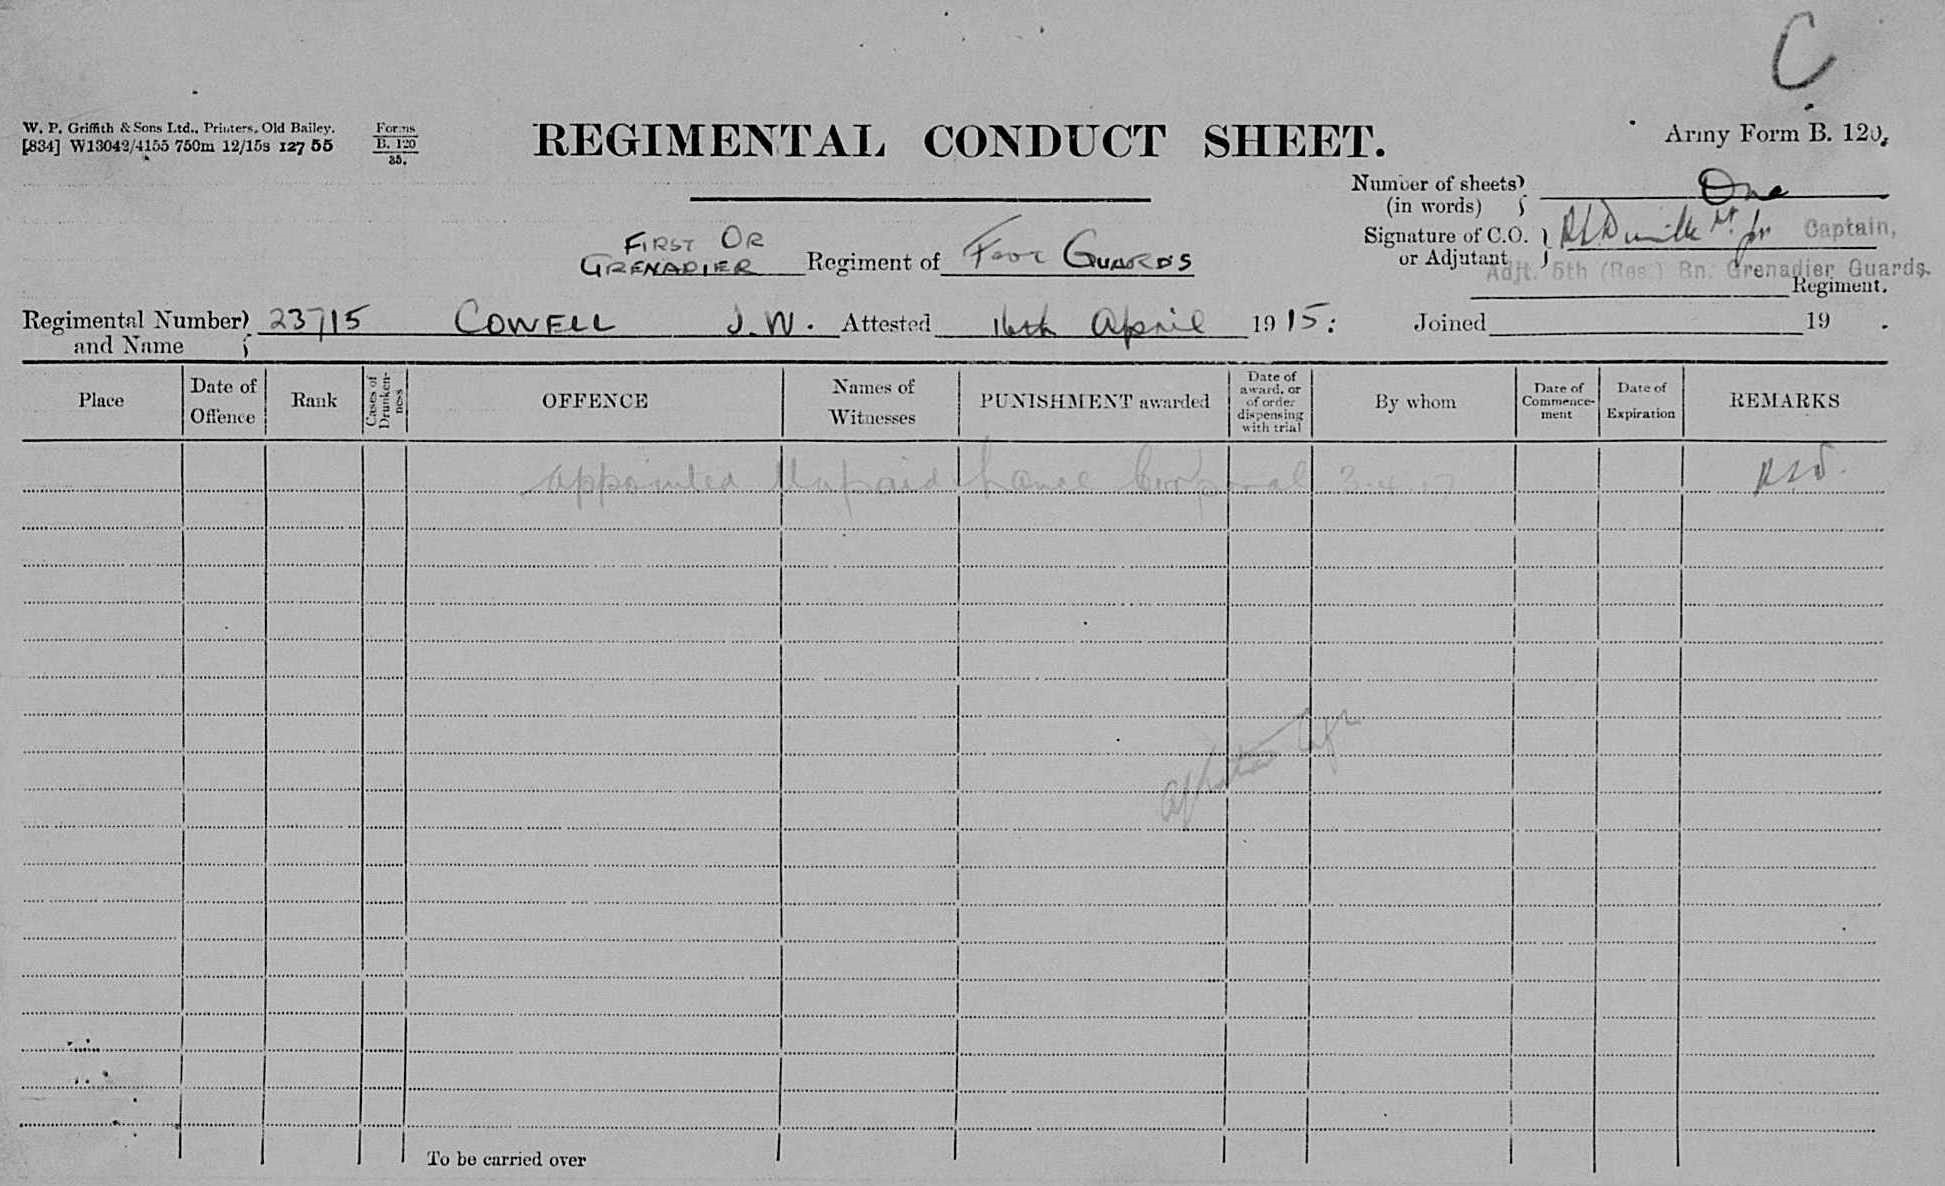 C
W. P. Griffith & Sons Ltd., Printers, Old Bailey.
[834] W13042/4155 750m 12/15s 127 55
Forms
B. 120
35.
REGIMENTAL CONDUCT SHEET.
Army Form B. 120.
Number of sheets (in words) One
Signature of C.O. or Adjutant Captain,
Adjt. 5th (Res.) Bn. Grenadier Guards.
Regiment.
FIRST OR
GRENADIER Regiment of FOOT GUARDS
Regimental Number and Name 23715 COWELL J.W. Attested 16th April 1915: Joined 19 .
Place
Date of Offence
Rank
Cases of Drunken-ness
OFFENCE
Names of Witnesses
PUNISHMENT awarded
Date of award, or of order dispensing with trial
By whom
Date of Commence-ment
Date of Expiration
REMARKS
Appointed Unpaid Lance Corporal 3.4.17
To be carried over